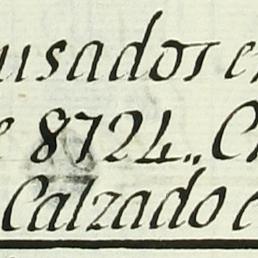 usados e
e 8724,, C
Calzado e